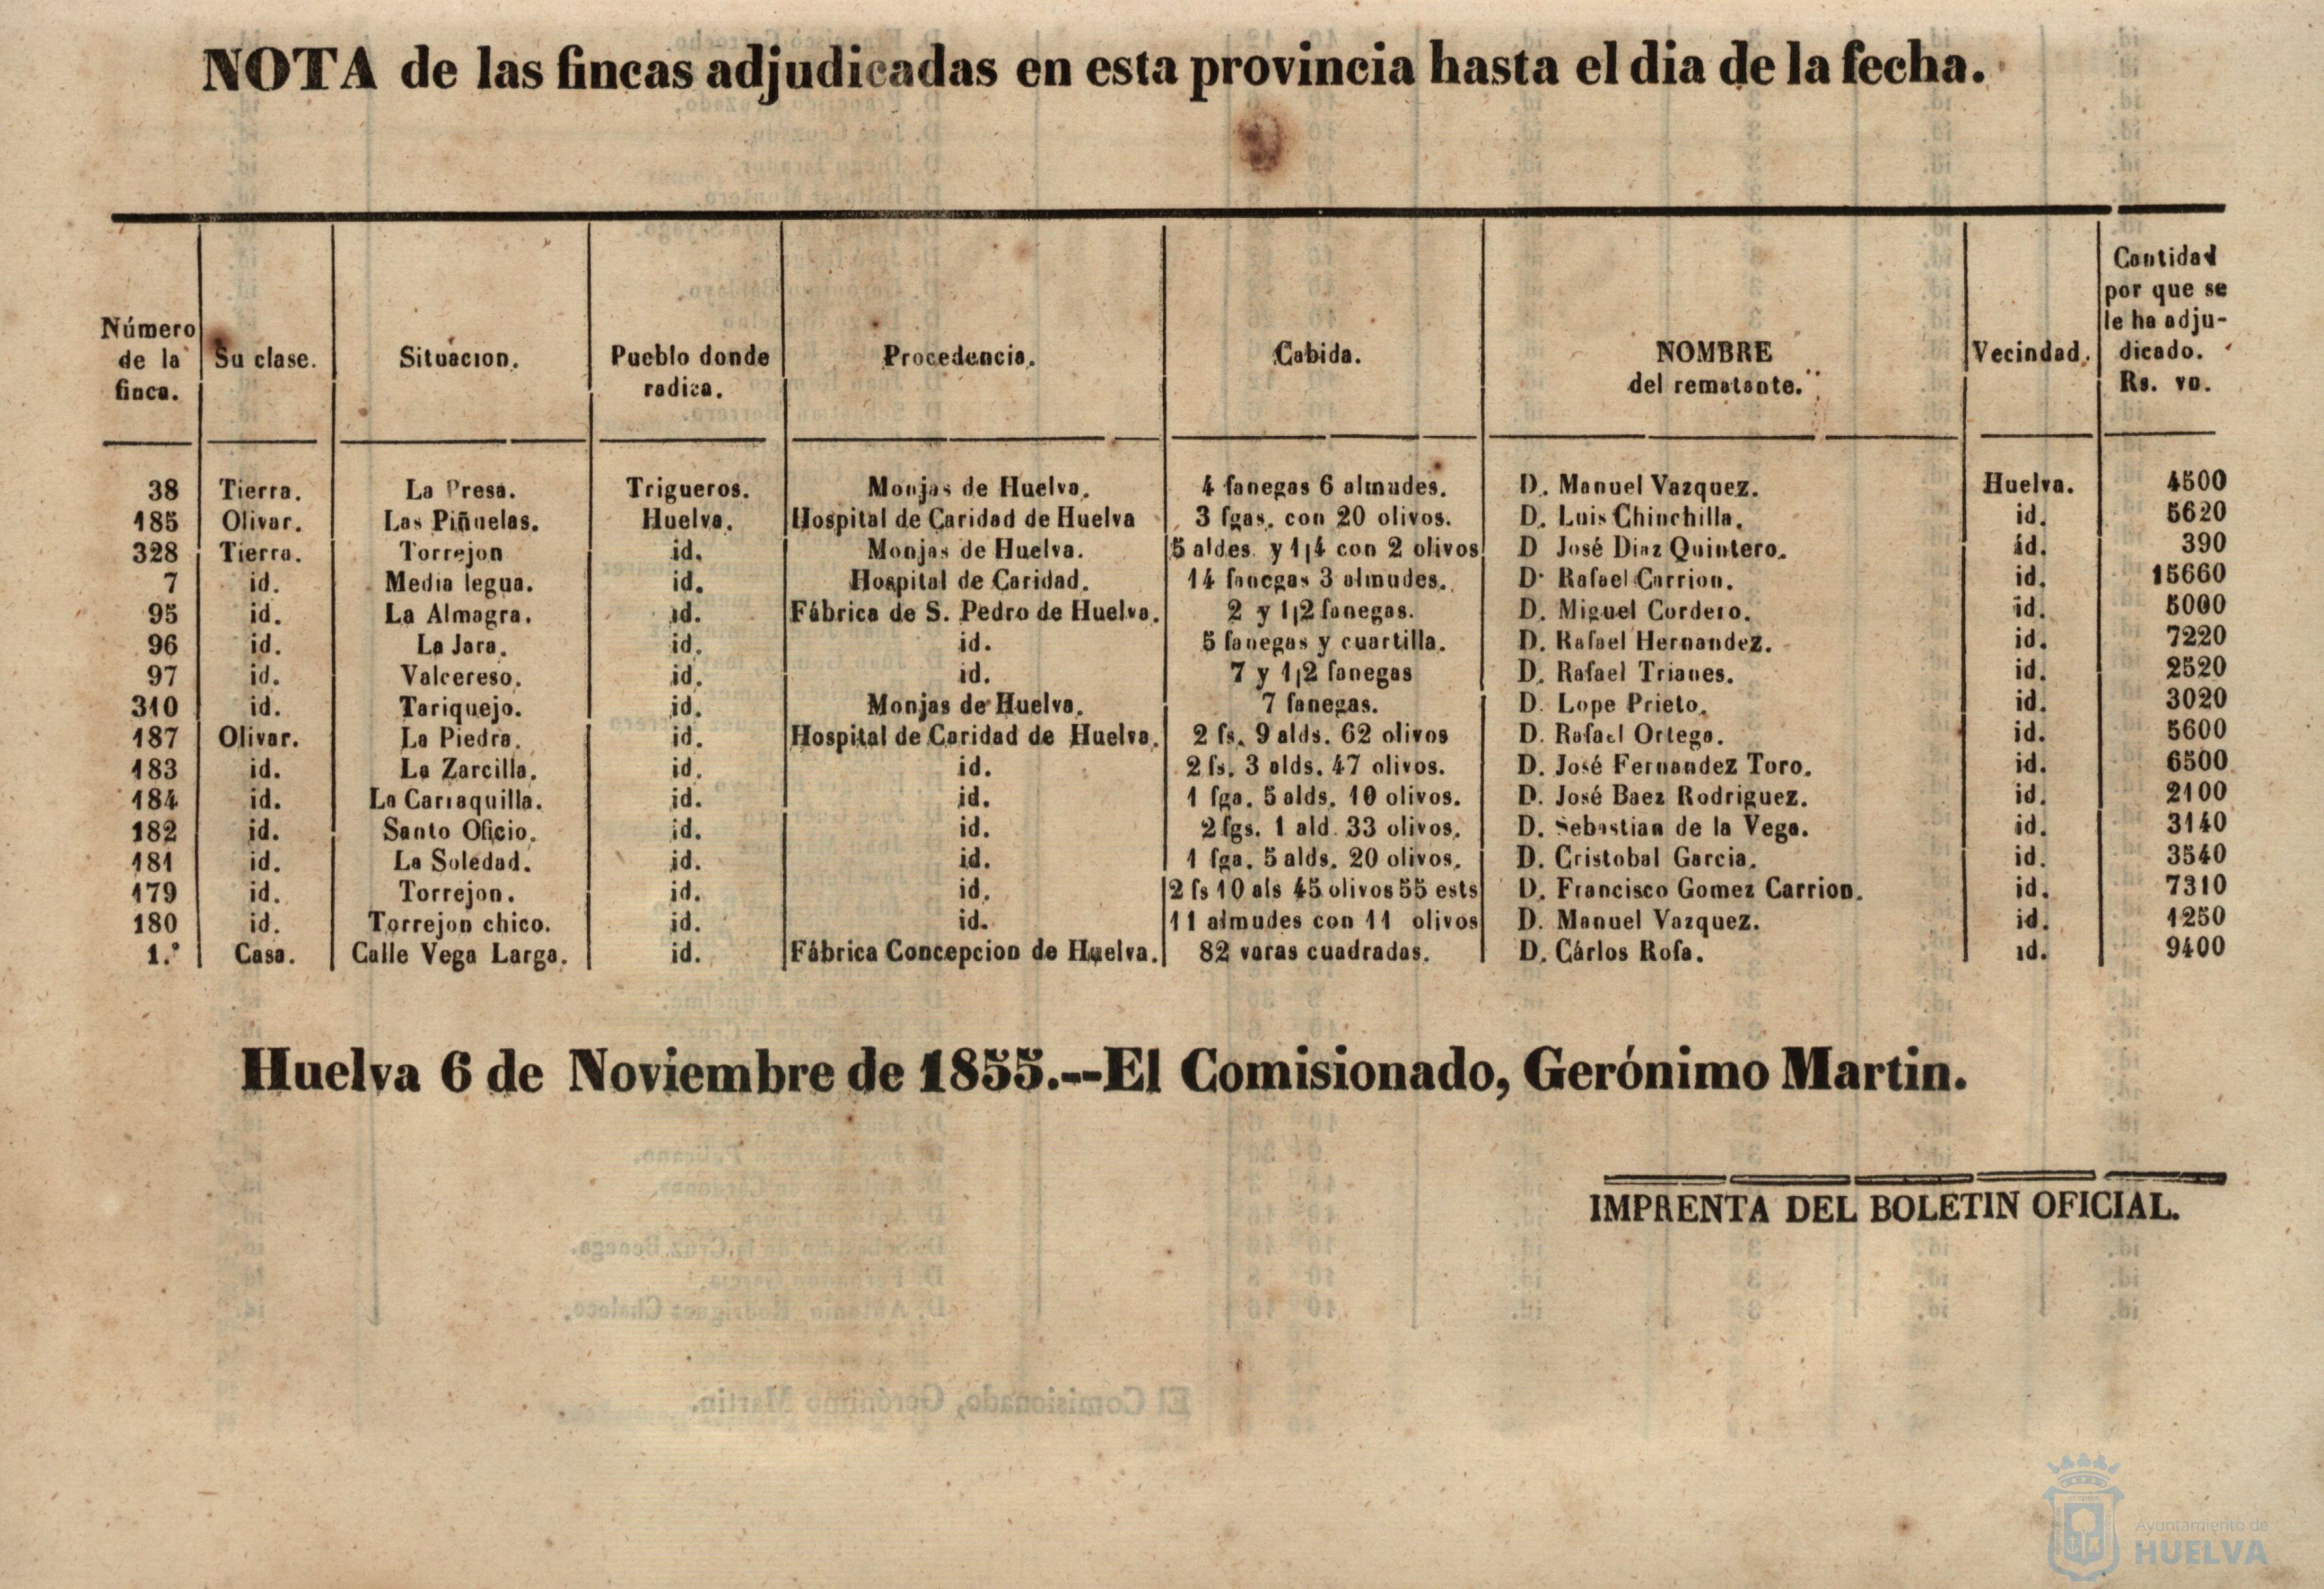 NOTA de las fincas adjudicadas en esta provincia hasta el dia de la fecha.
Número de la finca. Su clase. Situacion. Pueblo donde radica. Procedencia. Cabida. NOMBRE del rematante. Vecindad. Cantidad por que se le ha adju-dicado. Rs. vn.
38 Tierra. La Presa. Trigueros. Monjas de Huelva. 4 fanegas 6 almudes. D. Manuel Vazquez. Huelva. 4500
185 Olivar. Las Piñuelas. Huelva. Hospital de Caridad de Huelva 3 fgas. con 20 olivos. D. Luis Chinchilla. id. 5620
328 Tierra. Torrejon id. Monjas de Huelva. 5 aldes. y 1|4 con 2 olivos D José Diaz Quintero. id. 390
7 id. Media legua. id. Hospital de Caridad. 14 fanegas 3 almudes. D. Rafael Carrion. id. 15660
95 id. La Almagra. id. Fábrica de S. Pedro de Huelva. 2 y 1|2 fanegas. D. Miguel Cordero. id. 5000
96 id. La Jara. id. id. 5 fanegas y cuartilla. D. Rafael Hernandez. id. 7220
97 id. Valcereso. id. id. 7 y 1|2 fanegas D. Rafael Trianes. id. 2520
310 id. Tariquejo. id. Monjas de Huelva. 7 fanegas. D. Lope Prieto. id. 3020
187 Olivar. La Piedra. id. Hospital de Caridad de Huelva. 2 fs. 9 alds. 62 olivos D. Rafael Ortega. id. 5600
183 id. La Zarcilla. id. id. 2 fs. 3 alds. 47 olivos. D. José Fernandez Toro. id. 6500
184 id. La Carraquilla. id. id. 1 fga. 5 alds. 10 olivos. D. José Baez Rodriguez. id. 2100
182 id. Santo Oficio. id. id. 2 fgs. 1 ald. 33 olivos. D. Sebastian de la Vega. id. 3140
181 id. La Soledad. id. id. 1 fga. 5 alds. 20 olivos. D. Cristobal Garcia. id. 3540
179 id. Torrejon. id. id. 2 fs 10 als 45 olivos 55 ests D. Francisco Gomez Carrion. id. 7310
180 id. Torrejon chico. id. id. 11 almudes con 11 olivos D. Manuel Vazquez. id. 1250
1.° Casa. Calle Vega Larga. id. Fábrica Concepcion de Huelva. 82 varas cuadradas. D. Cárlos Rofa. id. 9400
Huelva 6 de Noviembre de 1855.--El Comisionado, Gerónimo Martin.
IMPRENTA DEL BOLETIN OFICIAL.
Ayuntamiento de
HUELVA